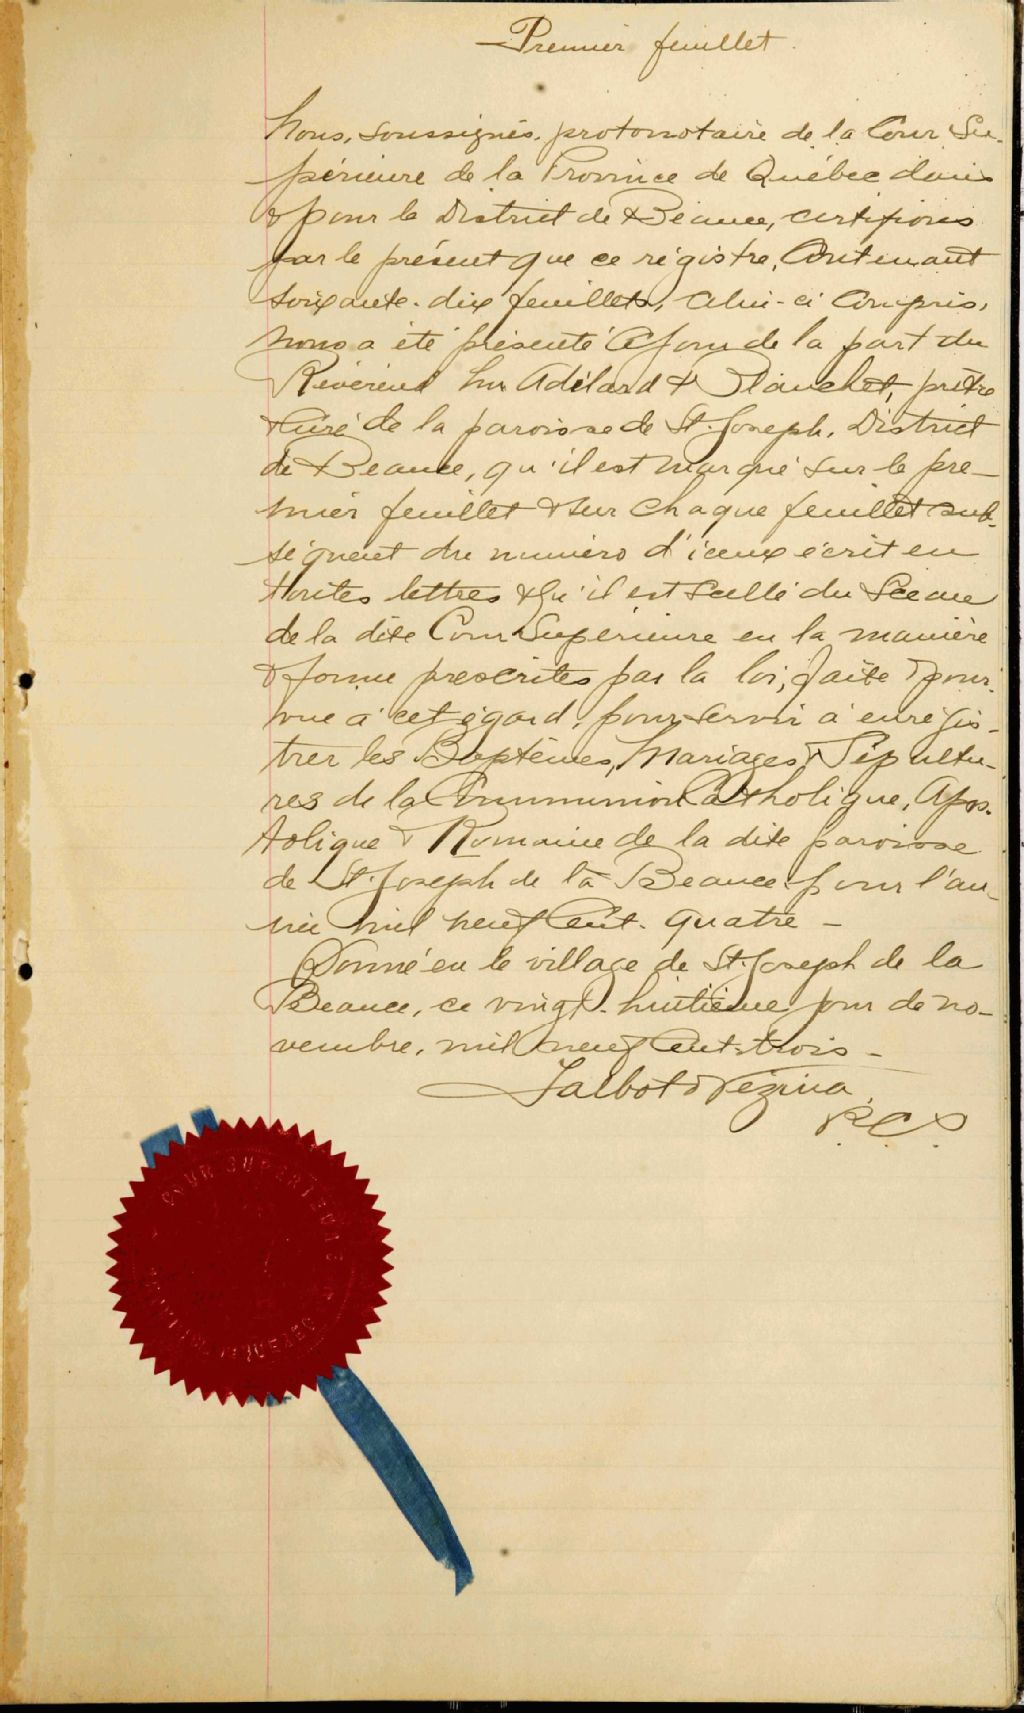 Premier feuillet
Nous, soussignés, protonotaire de la Cour Su-
périeure de la Province de Québec dans
& pour le District de Beauce, certifions
par le présent que ce régistre, Contenant
soixante-dix feuillets, celui-ci Compris,
nous a été présenté Ce jour de la part du
Révérend Adélard Blanchet, prêtre
Curé de la paroisse de St. Joseph, District
de Beauce, qu'il est marqué sur le pre-
mier feuillet & sur chaque feuillet sub-
séquent du numéro d'iceux écrit en
toutes lettres & qu'il est scellé du Sceau
de la dite Cour Supérieure en la manière
& forme prescrites par la loi, faite & pour-
vue à cet égard, pour servir à enrégis-
trer les Baptêmes, Mariages & Sépultu-
res de la Communion Catholique, Apos-
tolique & Romaine de la dite paroisse
de St. Joseph de la Beauce pour l'an-
née mil neuf Cent quatre -
Donné en le village de St. Joseph de la
Beauce, ce vingt-huitième jour de no-
vembre, mil neuf Cent trois -
Talbot & Vézina
P.C.S.
COUR SUPERIEURE
QUEBEC